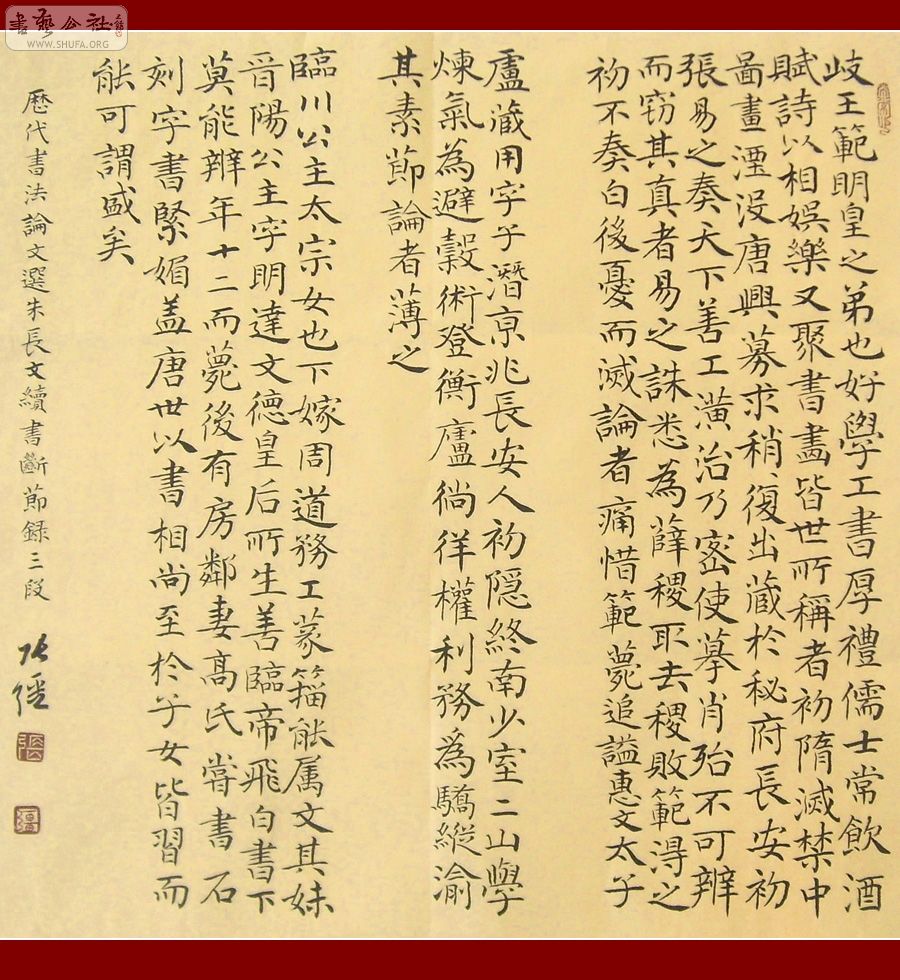 書藝公社
WWW.SHUFA.ORG
岐王範明皇之弟也好學工書厚禮儒士常飲酒
賦詩以相娛樂又聚書畫皆世所稱者初隋滅禁中
啚畫湮没唐興募求稍復出蔵於秘府長安初
張易之奏天下善工潢治乃密使摹肖殆不可辨
而窃其真者易之誅悉為薛稷取去稷敗範得之
初不奏白後憂而滅論者痛惜範薨追謚惠文太子
盧蔵用字子潛京兆長安人初隐終南少室二山學
煉氣為避穀術登衡廬徜徉權利務為驕縱渝
其素節論者薄之
臨川公主太宗女也下嫁周道務工篆籀能属文其妹
晋陽公主字明達文德皇后所生善臨帝飛白書下
莫能辨年十二而薨後有房鄰妻髙氏嘗書石
刻字書緊媚盖唐世以書相尚至於子女皆習而
能可謂盛矣
歷代書法論文選朱長文續書斷節録三段
張